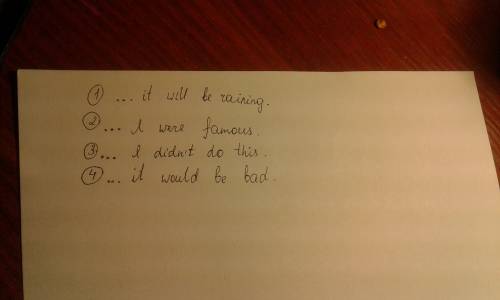 1 ... it will be raining.
2 ... I were famous.
3 ... I didn't do this.
4 ... it would be bad.